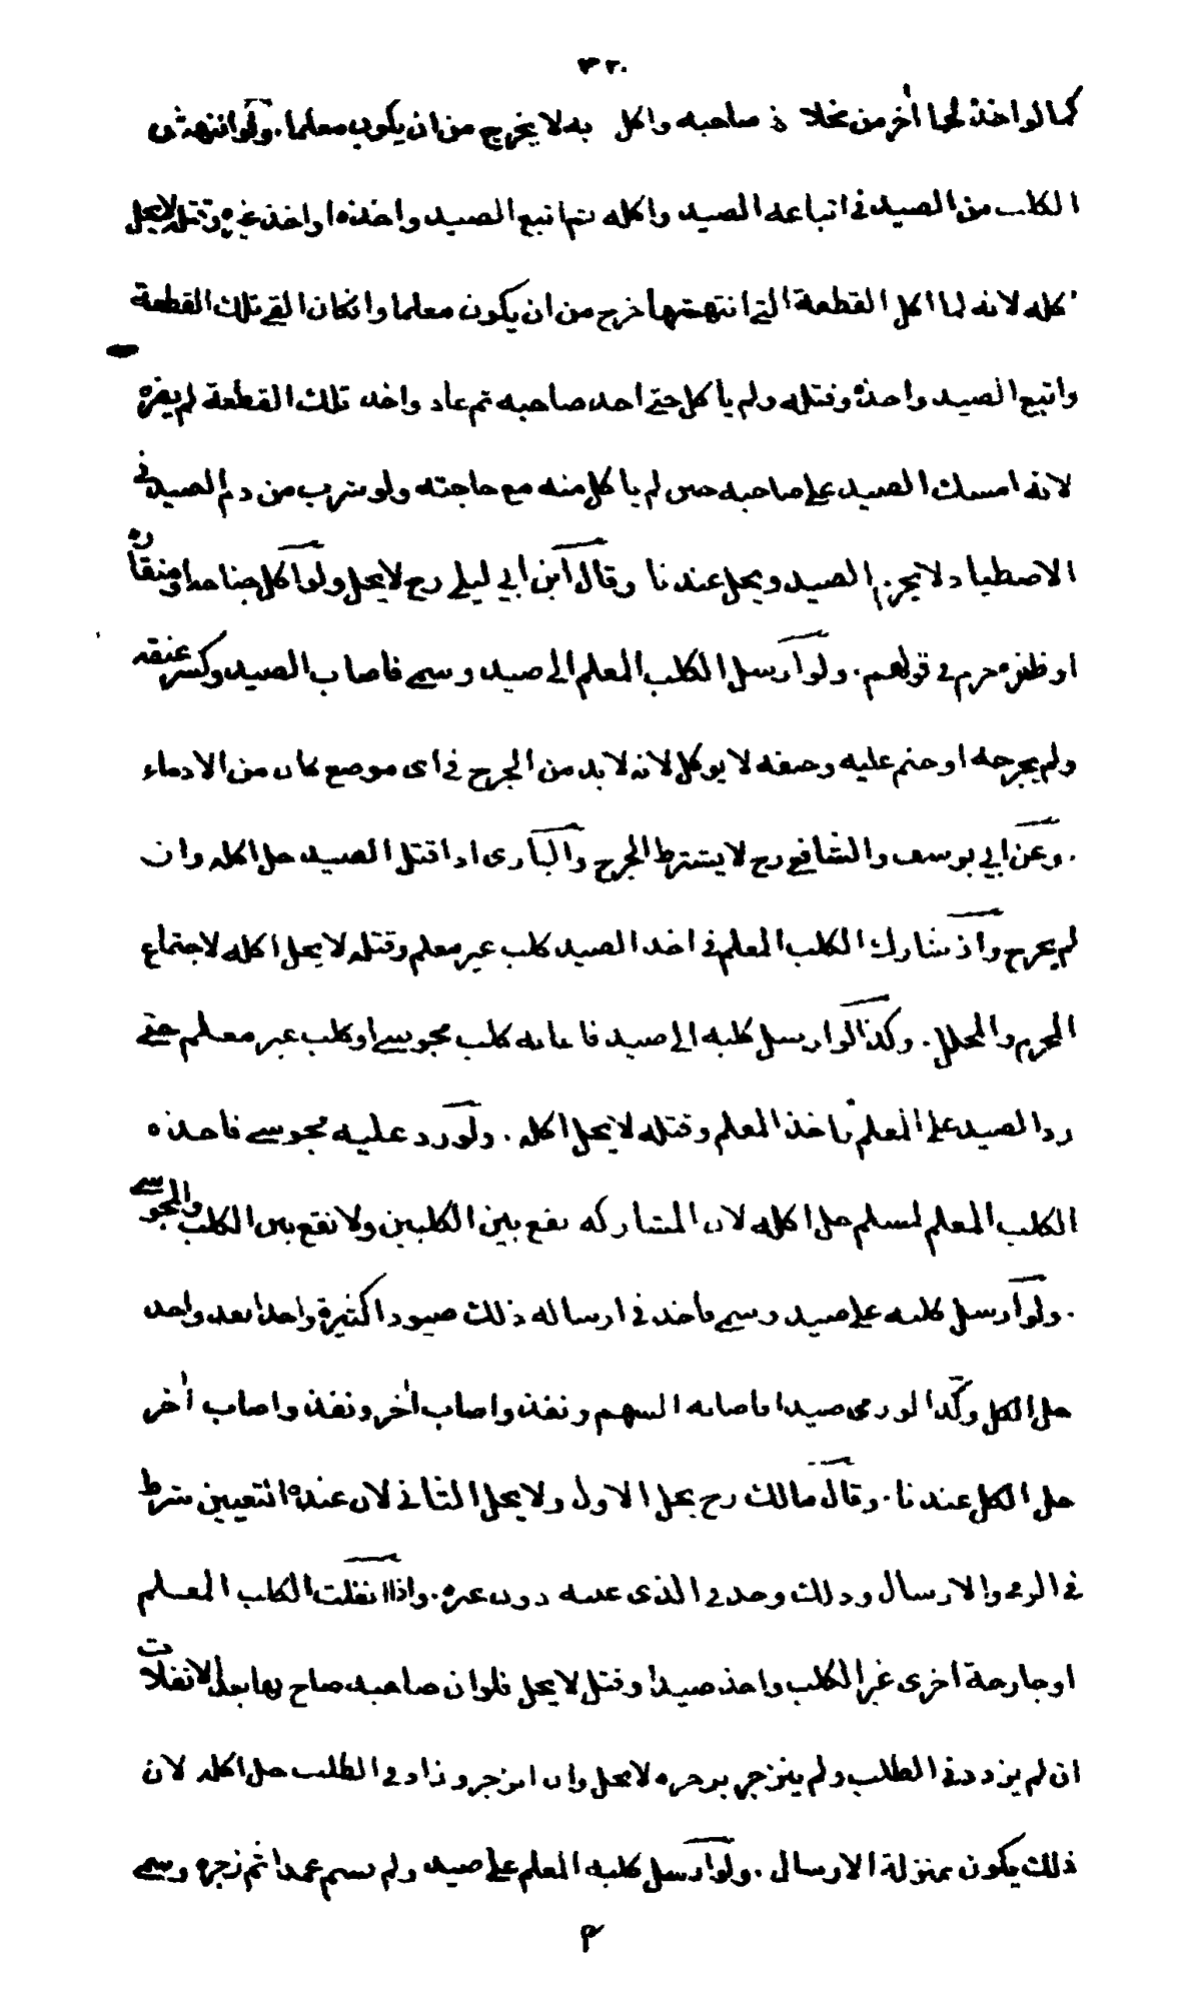 ٣٢٠
كما لو اخذ لحما آخر من مخلاة صاحبه واكل به لا يخرج من ان يكون معلما . ولو انتهش
الكلب من الصيد فى اتباعه الصيد واكله ثم اتبع الصيد واخذه او اخذ غيره وقتل لا يحل
اكله لانه لما اكل القطعة التى انتهشها خرج من ان يكون معلما وان كان القى تلك القطعة
واتبع الصيد واخذه وقتله ولم ياكل حتى اخذ صاحبه ثم عاد واخذ تلك القطعة لم يضره
لانه امسك الصيد على صاحبه حين لم ياكل منه مع حاجته ولو شرب من دم الصيد فى
الاصطياد لا يحرم الصيد ويحل عندنا وقال ابن ابي ليلى رح لا يحل ولو اكل جناحه او منقاره
او ظفره حرم فى قولهم . ولو ارسل الكلب المعلم الى صيد وسمى فاصاب الصيد وكسر عنقه
ولم يجرحه او جثم عليه وخنقه لا يوكل لانه لا بد من الجرح فى اى موضع كان من الادماء
. وعن ابي يوسف والشافعى رح لا يشترط الجرح والبازى اذا قتل الصيد حل اكله وان
لم يجرح واذ شارك الكلب المعلم فى اخذ الصيد كلب غير معلم وقتله لا يحل اكله لاجتماع
المحرم والمحلل . وكذا لو ارسل كلبه الى صيد فاعانه كلب مجوسى او كلب غير معلم حتى
رد الصيد على المعلم فاخذ المعلم وقتله لا يحل اكله . ولو رد عليه مجوسى فاخذه
الكلب المعلم لمسلم حل اكله لان المشاركة تقع بين الكلبين ولا تقع بين الكلب والمجوسى
. ولو ارسل كلبه على صيد وسمى فاخذ فى ارساله ذلك صيودا كثيرة واحدا بعد واحد
حل الكل وكذا لو رمى صيدا فاصابه السهم ونفذ واصاب آخر ونفذ واصاب آخر
حل الكل عندنا . وقال مالك رح يحل الاول ولا يحل الثانى لان عنده التعيين شرط
فى الرمى والارسال وذلك وجد فى الذى عينه دون غيره . واذا انفلت الكلب المعلم
او جارحة اخرى غير الكلب واخذ صيدا وقتل لا يحل فلو ان صاحبه صاح بها بعد الانفلات
ان لم يزدد فى الطلب ولم ينزجر بزجره لا يحل وان انزجر وزاد فى الطلب حل اكله لان
ذلك يكون بمنزلة الارسال . ولو ارسل كلبه المعلم على صيد ولم يسم عمدا ثم زجره وسمى